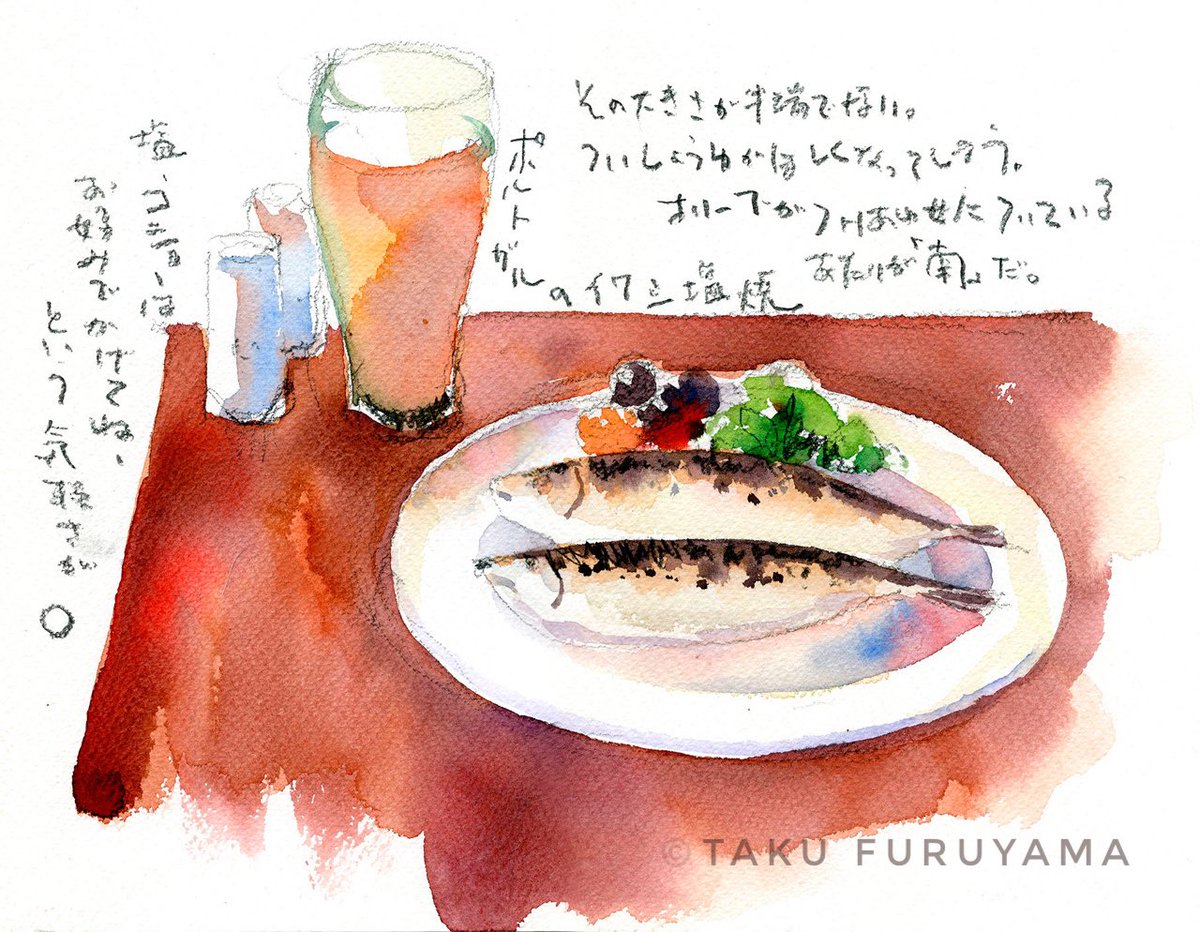 その大きさが半端でない。
ついしょうゆがほしくなってしまう。
オリーブがつけあわせについている
あたりが「南」だ。
ポルトガルのイワシ塩焼
塩、コショーは
お好みでかけてね、
という気軽さが
○
© TAKU FURUYAMA